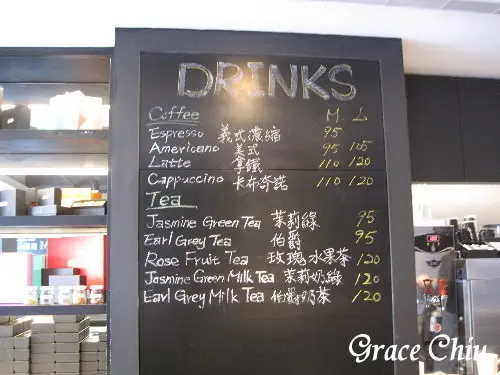 DRINKS
Coffee M L
Espresso 義式濃縮 95
Americano 美式 95 105
Latte 拿鐵 110 120
Cappuccino 卡布奇諾 110 120
Tea
Jasmine Green Tea 茉莉綠 95
Earl Grey Tea 伯爵 95
Rose Fruit Tea 玫瑰水果茶 120
Jasmine Green Milk Tea 茉莉奶綠 120
Earl Grey Milk Tea 伯爵奶茶 120
Grace Chiu